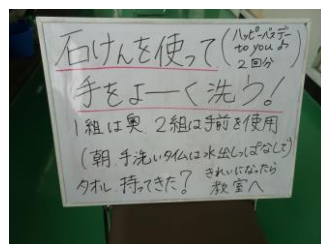 石けんを使って
(ハッピーバースデー
to you ♪
2回分)
手をよーく洗う!
1組は奥 2組は手前を使用
(朝、手洗いタイムは水出しっぱなしで)
タオル、持ってきた?
きれいになったら
教室へ